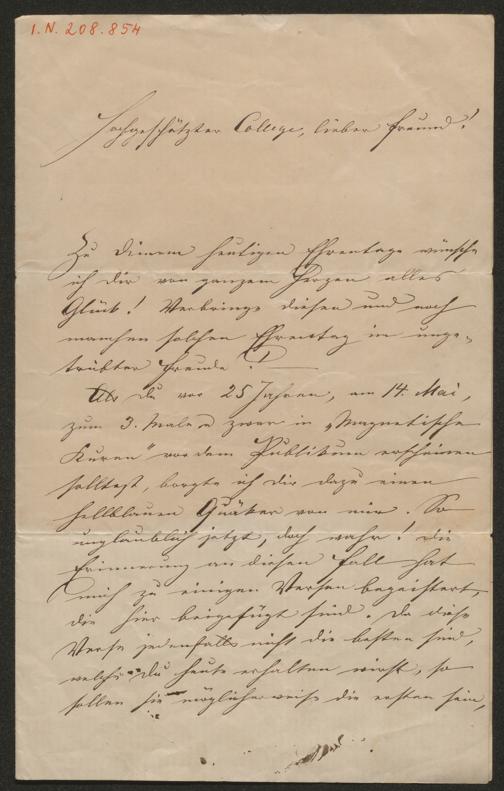 I.N. 208.854
Hochgeschätzter College, lieber Freund!
Zu Deinem heutigen Ehrentage wünsche
ich Dir von ganzem Herzen alles
Glück! Verbringe diesen und noch
manchen solchen Ehrentag in unge-
trübter Freude! —
Als Du vor 25 Jahren, am 14. Mai,
zum 3. Male u zwar in "Magnetische
Kuren" vor dem Publikum erscheinen
solltest, borgte ich Dir dazu einen
hellblauen Quäker von mir. So
unglaublich jetzt, doch wahr! Die
Erinnerung an diesen Fall hat
mich zu einigen Versen begeistert,
die hier beigefügt sind. Da diese
Verse jedenfalls nicht die besten sind,
welche Du heute erhalten wirst, so
sollen sie möglicherweise die ersten sein,